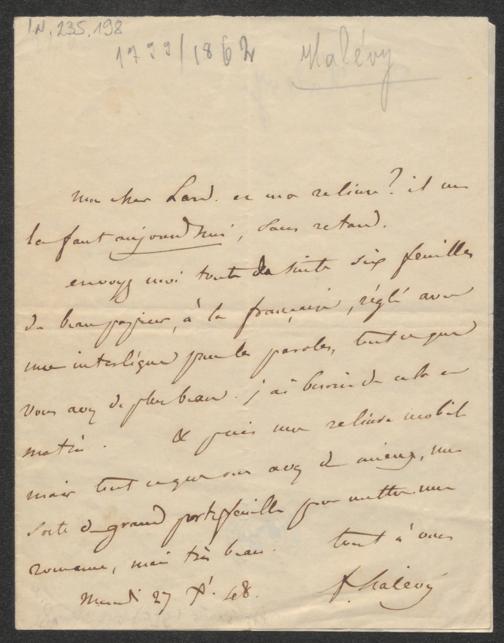 IN. 235.198
1799/1862 Halévy
mon cher Lard. et ma reliure? il me
la faut aujourd'hui, sans retard.
envoyez moi toute de suite six feuilles
de beau papier, à la française, réglé avec
une interligne pour les paroles, tout ce que
vous avez de plus beau. j'ai besoin de cela ce
matin. & puis une reliure mobile
mais tout ce que vous avez de mieux, une
sorte de grand portefeuille pour mettre une
romance, mais très beau. tout à vous
27 Xr. 48. F. Halévy